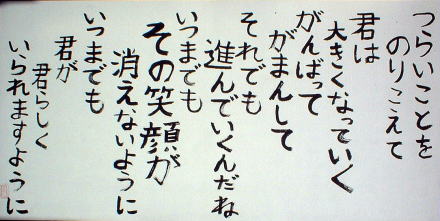 つらいことを
のりこえて
君は
大きくなっていく
がんばって
がまんして
それでも
進んでいくんだね
いつまでも
その笑顔が
消えないように
いつまでも
君が
君らしく
いられますように